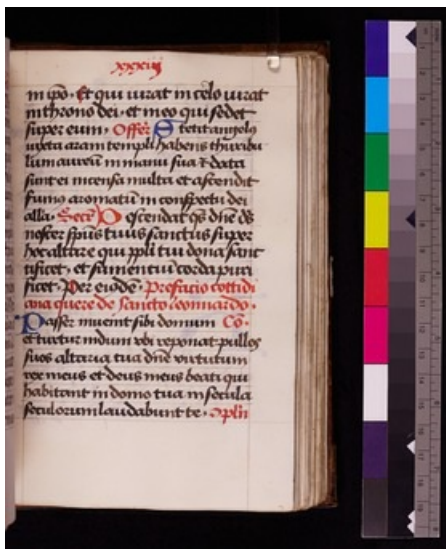 xxxiiij
in ip̄o · Et qui iurat in celo iurat
in throno dei · et in eo qui sedet
super eum · Offer̄ Stetit angelꝰ
iuxta aram templi habens thuribu
lum aureū in manu sua ⁊ data
sunt ei incensa multa et ascendit
fumꝰ aromatū in conspectu dei
alla · Secr̄ Descendat q̄s dn̄e dꝰ
noster sp̄us tuus sanctus super
hoc altare qui pp̄li tui dona sant
tificet · et sumentiū corda puri
ficet · Per eiūdē · Prefacio cottidi
ana quere de sancto leonnardo ·
Passer inuenit sibi domum Cō ·
et turtur nidum vbi reponat pullos
suos altaria tua dn̄e virtutum
rex meus et deus meus beati qui
habitant in domo tua in secula
seculorum laudabunt te ·